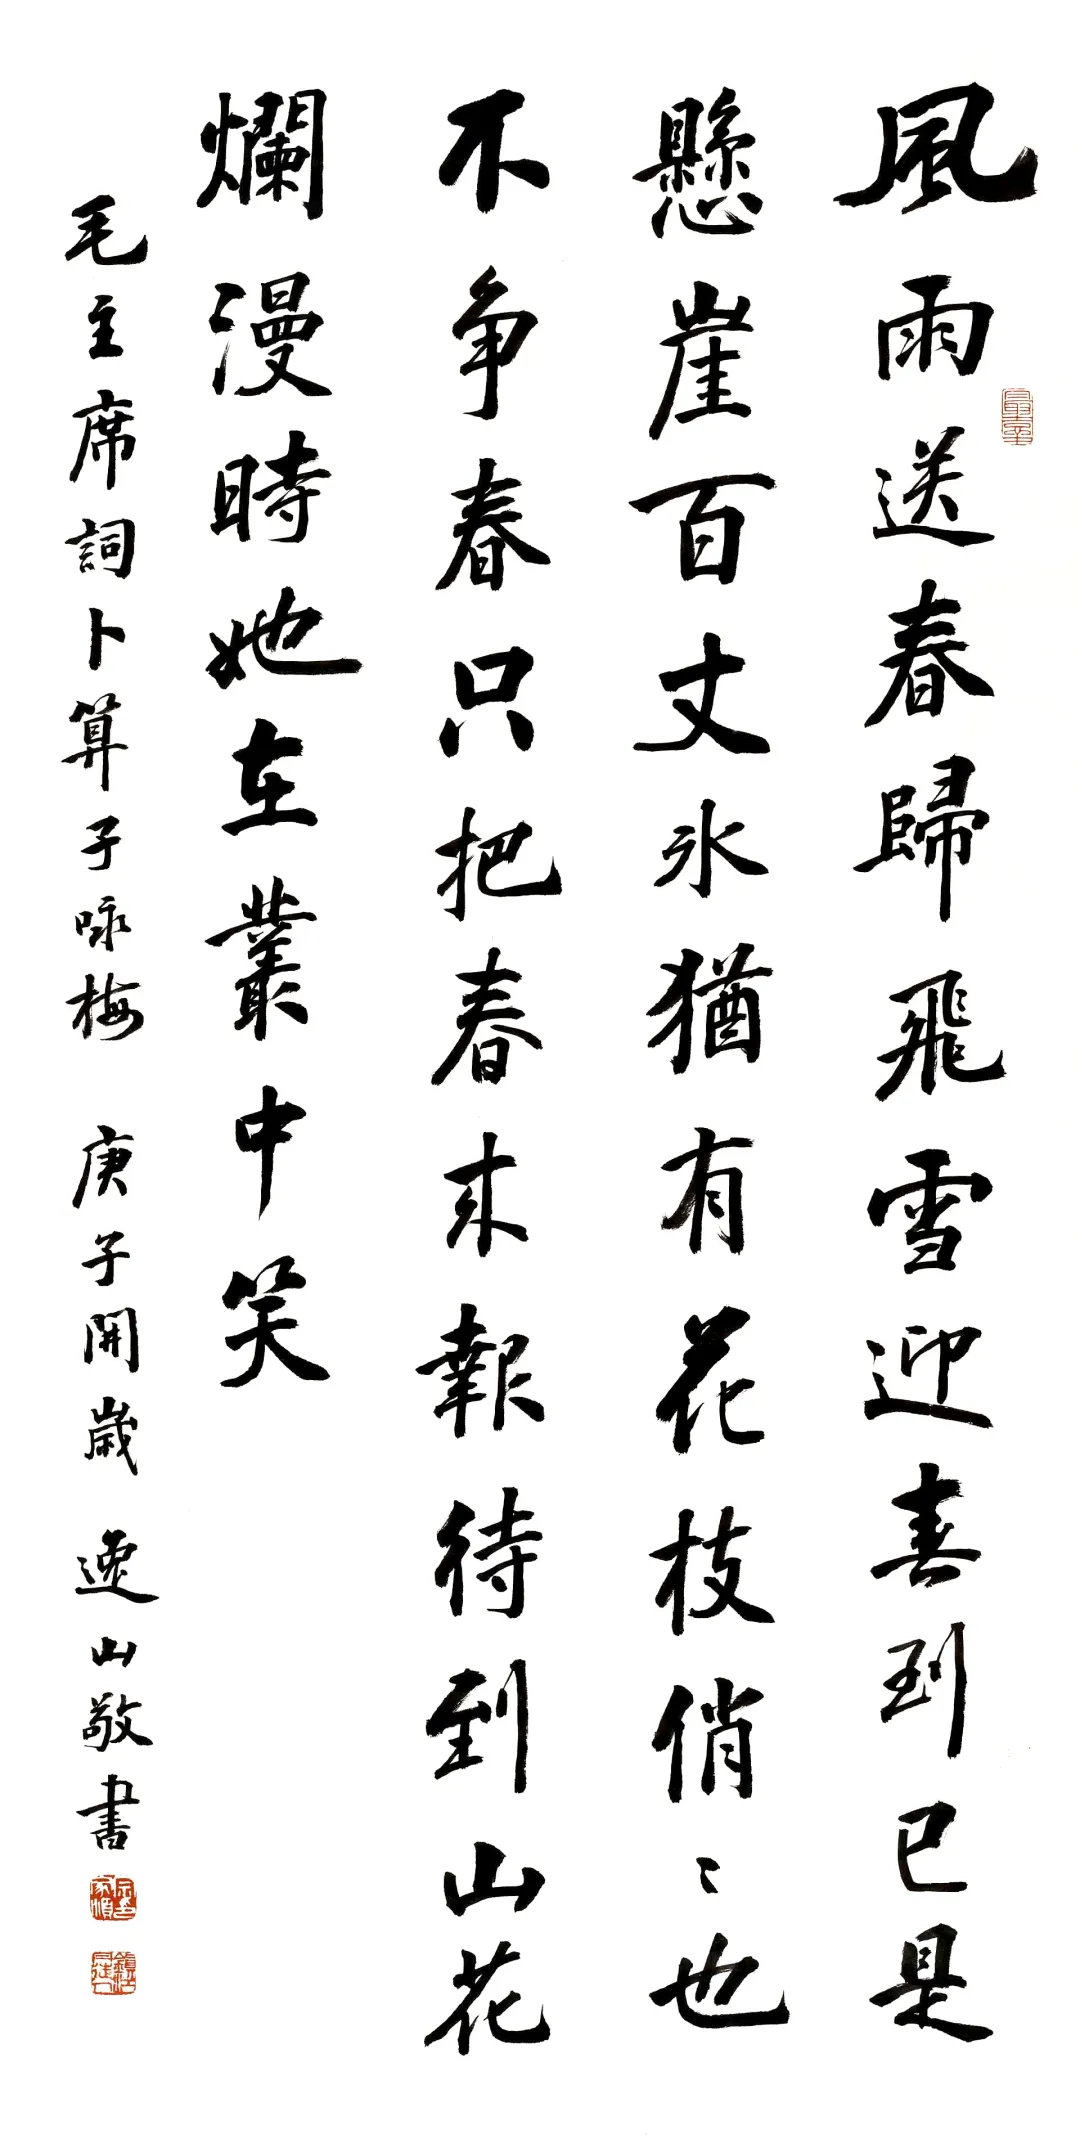 風雨送春歸飛雪迎春到已是
懸崖百丈冰猶有花枝俏〻也
不争春只把春来報待到山花
爛漫時她在叢中笑
毛主席詞卜算子咏梅 庚子開歲 逸山敬書